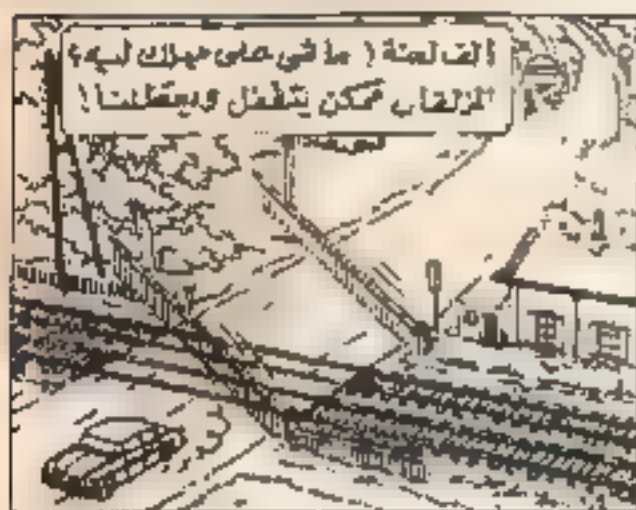 الف لعنة ! ما في على مهلك ليه ؟
المزلقان ممكن يتقفل ويعطلنا !